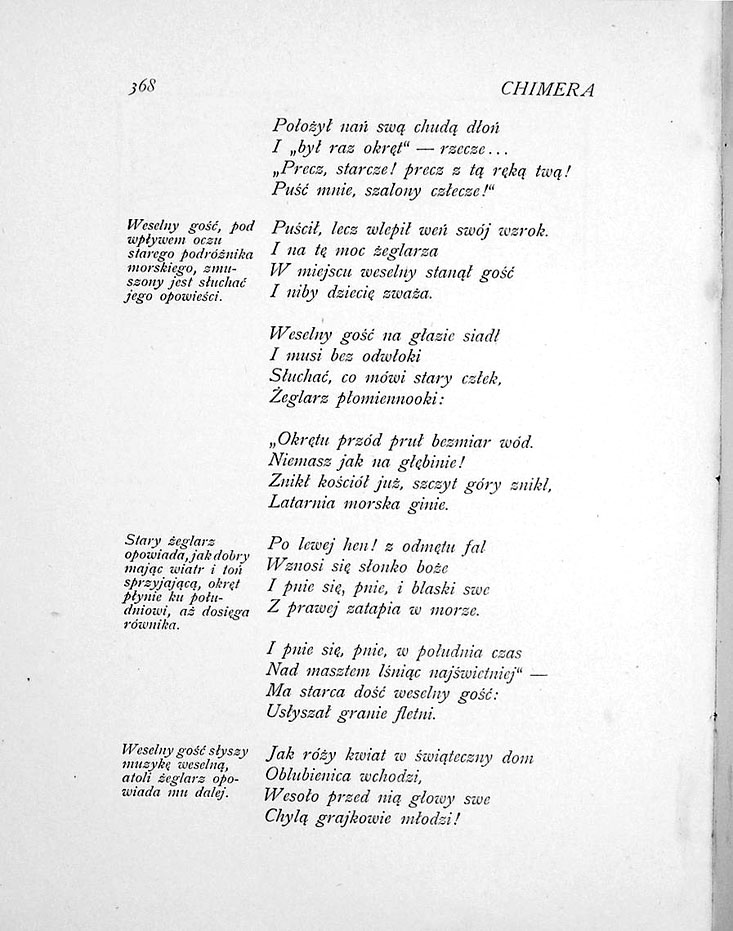 368
CHIMERA
Położył nań swą chudą dłoń
I „był raz okręt“ — rzecze...
„Precz, starcze! precz z tą ręką twą!
Puść mnie, szalony człecze!“
Weselny gość, pod
wpływem oczu
starego podróżnika
morskiego, zmu-
szony jest słuchać
jego opowieści.
Puścił, lecz wlepił weń swój wzrok.
I na tę moc żeglarza
W miejscu weselny stanął gość
I niby dziecię zważa.
Weselny gość na głazie siadł
I musi bez odwłoki
Słuchać, co mówi stary człek,
Żeglarz płomiennooki:
„Okrętu przód pruł bezmiar wód.
Niemasz jak na głębinie!
Znikł kościół już, szczyt góry znikł,
Latarnia morska ginie.
Stary żeglarz
opowiada, jak dobry
mając wiatr i toń
sprzyjającą, okręt
płynie ku połu-
dniowi, aż dosięga
równika.
Po lewej hen! z odmętu fal
Wznosi się słonko boże
I pnie się, pnie, i blaski swe
Z prawej zatapia w morze.
I pnie się, pnie, w południa czas
Nad masztem lśniąc najświetniej“ —
Ma starca dość weselny gość:
Usłyszał granie fletni.
Weselny gość słyszy
muzykę weselną,
atoli żeglarz opo-
wiada mu dalej.
Jak róży kwiat w świąteczny dom
Oblubienica wchodzi,
Wesoło przed nią głowy swe
Chylą grajkowie młodzi!